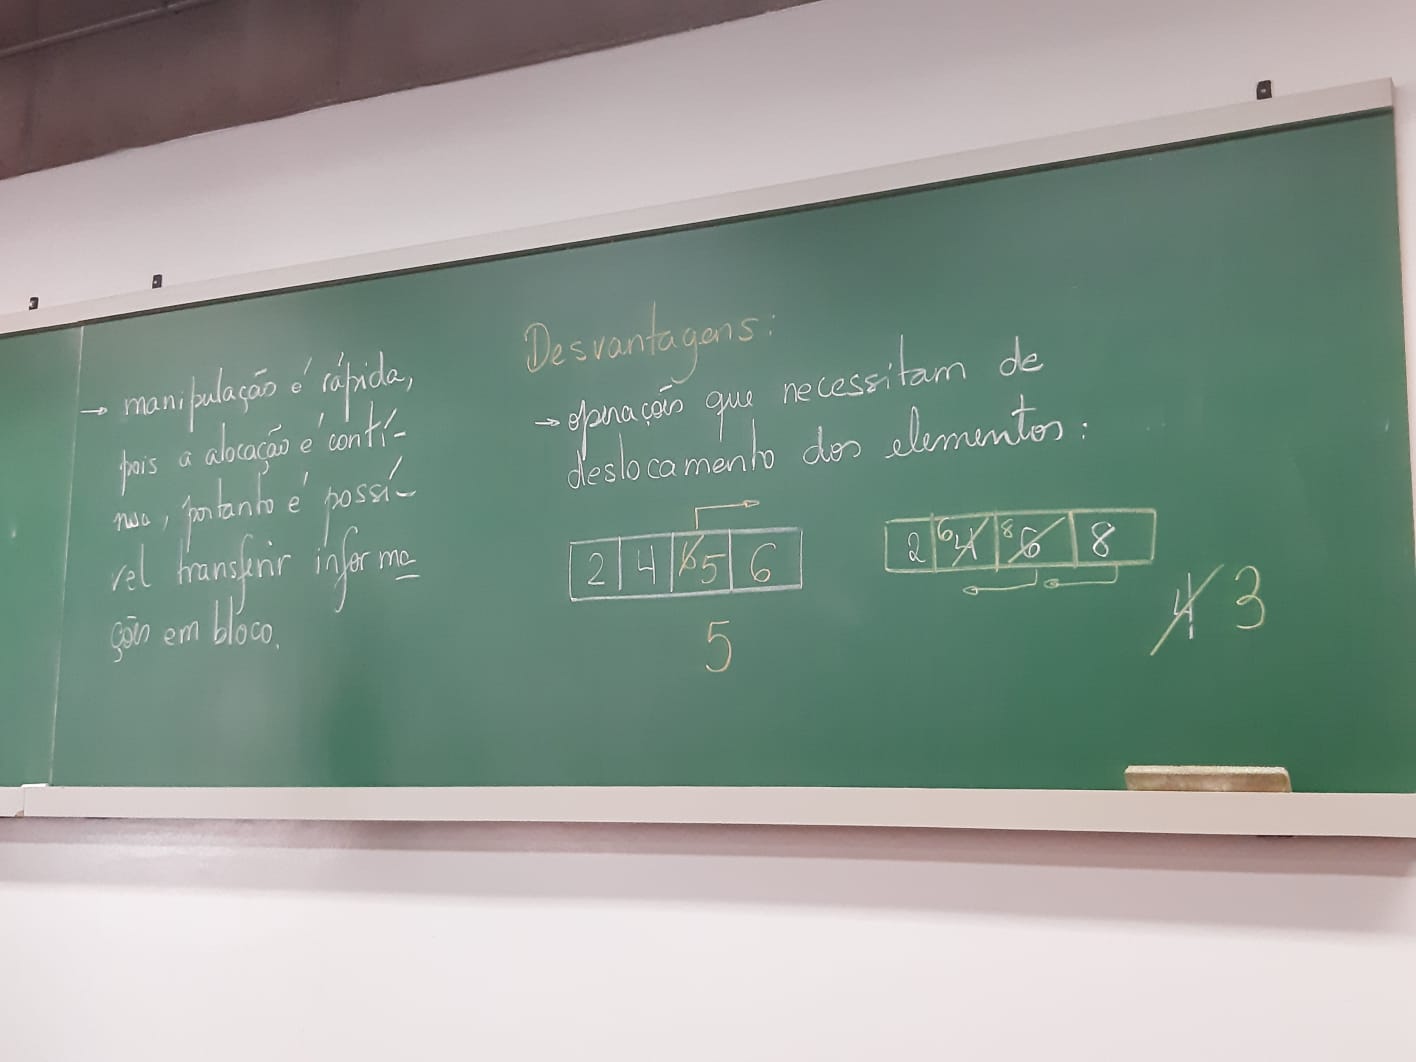 → manipulação é rápida,
pois a alocação é contí-
nua, portanto é possí-
vel transferir informa
ções em bloco.
Desvantagens:
→ operações que necessitam de
deslocamento dos elementos:
2 4 6 5 6
5
2 6 4 8 6 8
4 3